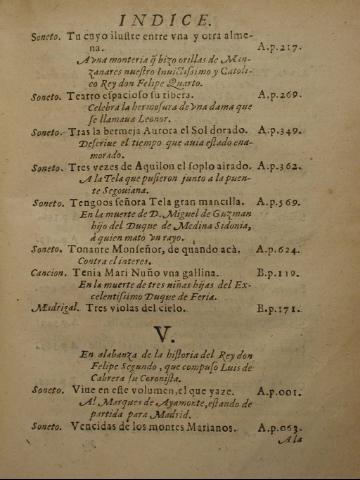 INDICE.
Soneto. Tu cuyo ilustre entre vna y otra alme-
na. A.p.217.
A vna monteria q̃ hizo orillas de Man-
zanares nuestro Inuictissimo y Catoli-
co Rey don Felipe Quarto.
Soneto. Teatro espacioso su ribera. A.p.269.
Celebra la hermosura de vna dama que
se llamaua Leonor.
Soneto. Tras la bermeja Aurora el Sol dorado. A.p.349.
Descriue el tiempo que auia estado ena-
morado.
Soneto. Tres vezes de Aquilon el soplo airado. A.p.362.
A la Tela que pusieron junto a la puen-
te Segouiana.
Soneto. Tengoos señora Tela gran mancilla. A.p.569.
En la muerte de D. Miguel de Guzman
hijo del Duque de Medina Sidonia,
à quien mato vn rayo.
Soneto. Tonante Monseñor, de quando acà. A.p.624.
Contra el interes.
Cancion. Tenia Mari Nuño vna gallina. B.p.119.
En la muerte de tres niñas hijas del Ex-
celentissimo Duque de Feria.
Madrigal. Tres violas del cielo. B.p.171.
V.
En alabanza de la historia del Rey don
Felipe Segundo, que compuso Luis de
Cabrera su Coronista.
Soneto. Viue en este volumen, el que yaze. A.p.001.
Al Marques de Ayamonte, estando de
partida para Madrid.
Soneto. Vencidas de los montes Marianos. A.p.063.
A la